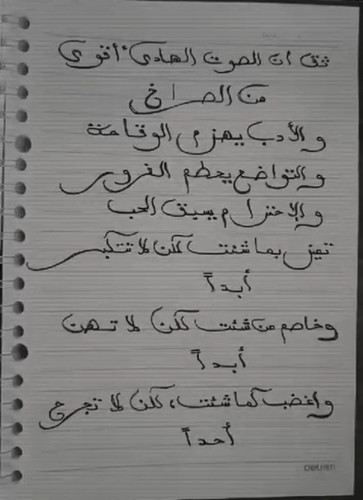 ثق أن الصوت الهادئ أقوى
من الصراخ
والأدب يهزم الوقاحة
والتواضع يحطم الغرور
والإحترام يسبق الحب
تميز بما شئت لكن لا تتكبر
أبداً
وخاصم من شئت لكن لا تهن
أبداً
واغضب كما شئت، لكن لا تجرح
أحداً